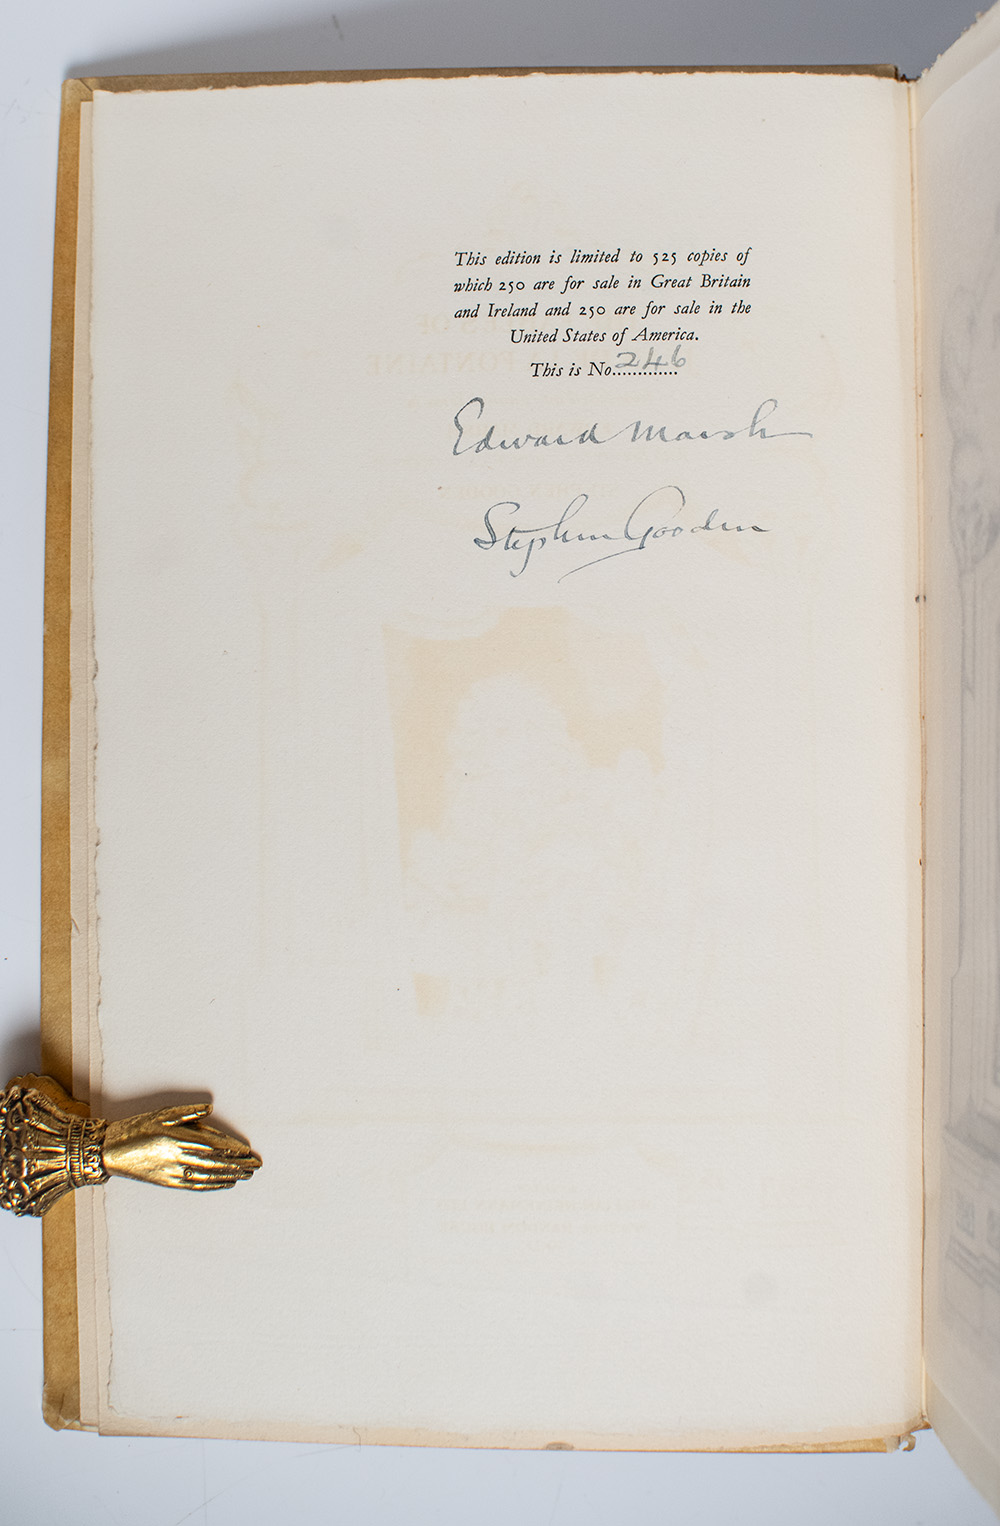 This edition is limited to 525 copies of
which 250 are for sale in Great Britain
and Ireland and 250 are for sale in the
United States of America.
This is No.............246
Edward Marsh
Stephen Gooden